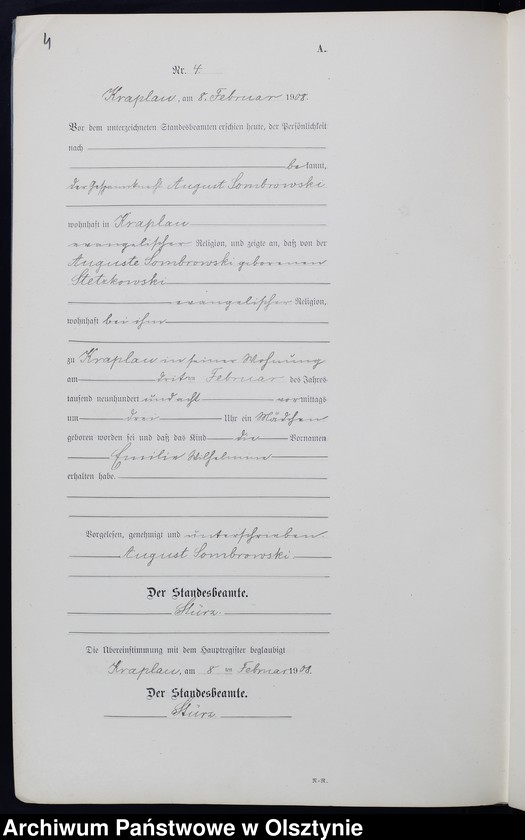 4
A.
Nr. 4.
Kraplau, am 8. Februar 1908.
Vor dem unterzeichneten Standesbeamten erschien heute, der Persönlichkeit
nach
bekannt,
der Gespannknecht August Sombrowski
wohnhaft in Kraplau
evangelischer Religion, und zeigte an, daß von der
Auguste Sombrowski geborenen
Stetzkowski
evangelischer Religion,
wohnhaft bei ihm
zu Kraplau in seiner Wohnung
am dritten Februar des Jahres
tausend neunhundert und acht vormittags
um drei Uhr ein Mädchen
geboren worden sei und daß das Kind die Vornamen
Emilie Wilhelmine
erhalten habe.
Vorgelesen, genehmigt und unterschrieben.
August Sombrowski
Der Standesbeamte.
Stürz
Die Übereinstimmung mit dem Hauptregister beglaubigt
Kraplau, am 8 ten Februar 1908.
Der Standesbeamte.
Stürz
R.-R.
Archiwum Państwowe w Olsztynie